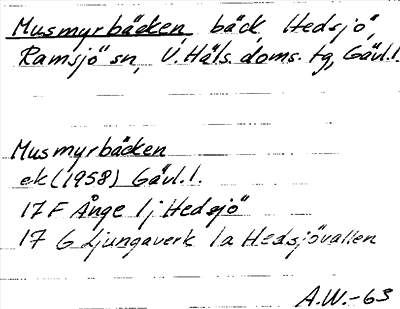 Musmyrbäcken, bäck, Hedsjö,
Ramsjö sn, V. Häls. doms. tg, Gävl. l.
Musmyrbäcken
ek (1958) Gävl. l.
17 F Ånge 1 j Hedsjö
17 G Ljungaverk 1a Hedsjövallen
A.W.-63